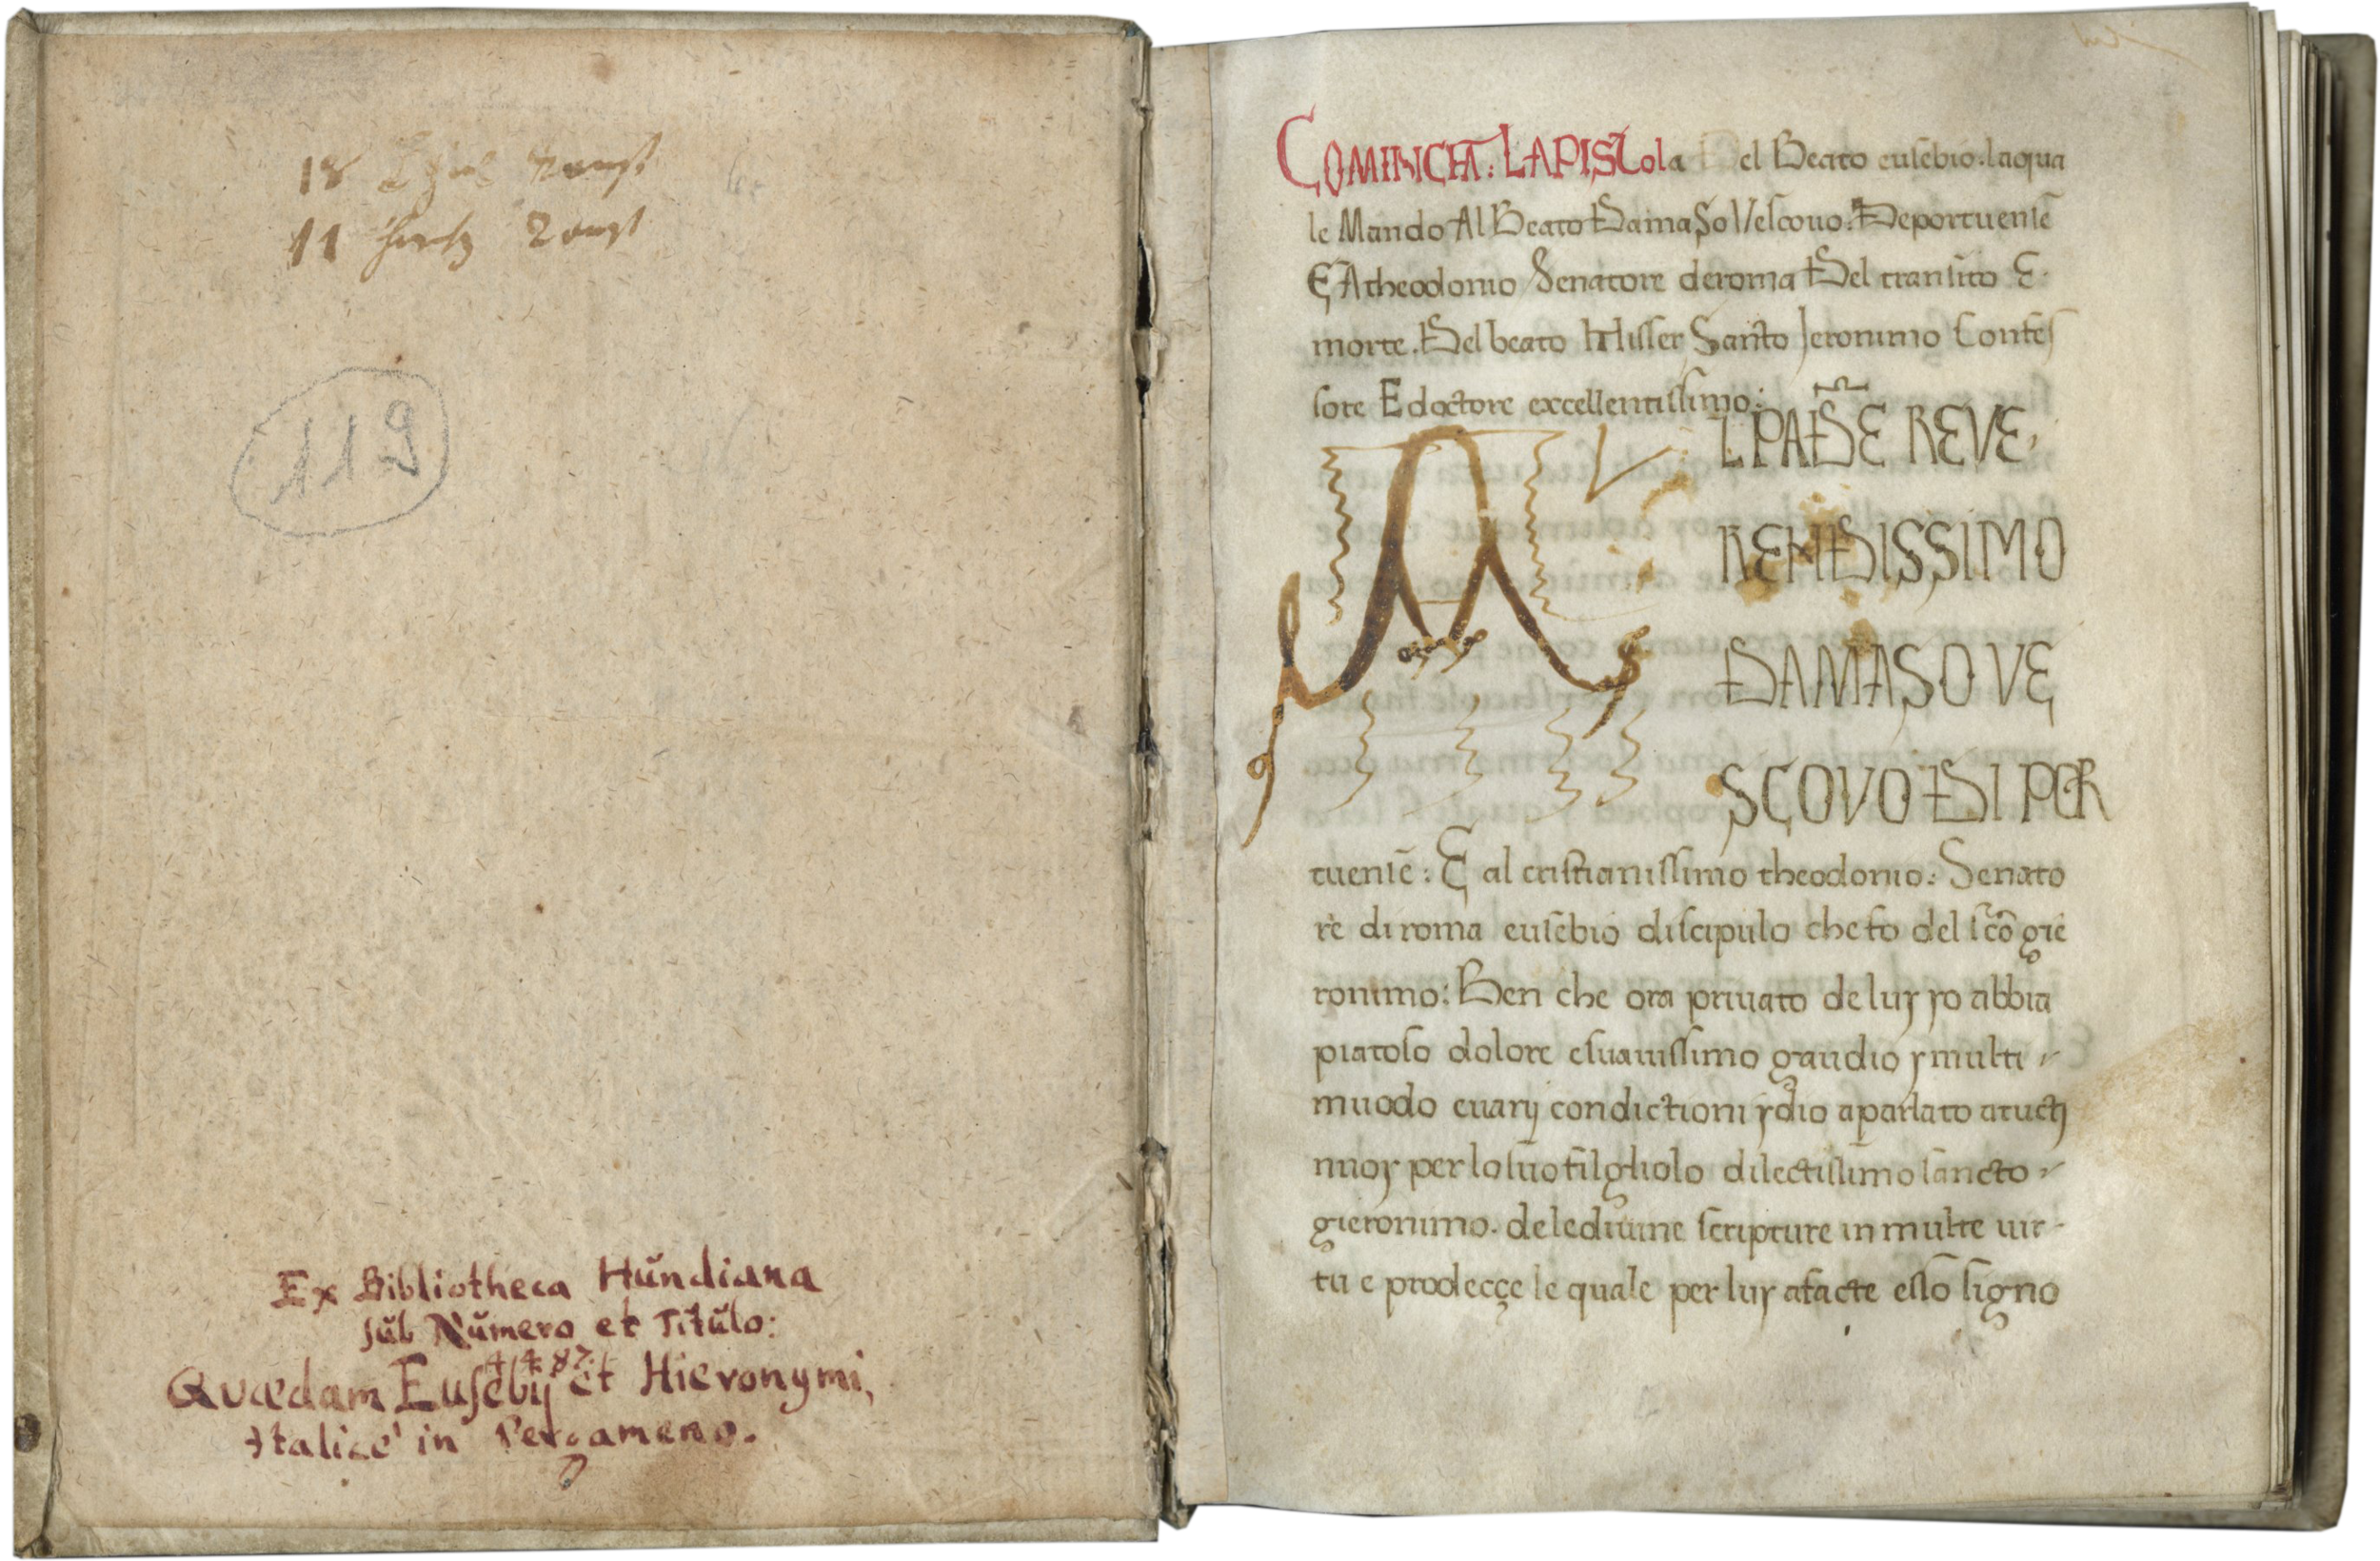 18
11
119
Ex Bibliotheca Hŭndiana
sŭb Nŭmero et Titŭlo:
4487.
Quædam Euſebij et Hieronymi,
Italicè in Pergameno.
COMINCIA: LAPISTola Del Beato euſebio. laqua
le Mando Al Beato DamaSo Veſcouo: Deportuenſē
E Atheodonio Senatore deroma Del tranſito E
morte. Del beato Miſſer Santo Jeronimo Confeſ
ſore E doctore excellentiſſimo:
AL PADRE REVE,
RENDISSIMO
DAMASO VE
SCOVO DI POR
tuenſē: E al criſtianiſſimo theodonio: Senato
re di roma euſebio diſcipulo che fo del ſc̄o gie
ronimo: Ben che ora priuato de luy yo abbia
piatoſo dolore eſuauiſſimo gaudio y multi
muodo euarij condictioni ydio a parlato atucti
nuoy per lo ſuo filgliolo dilectiſſimo ſancto
gieronimo. de lediuine ſcripture in multe uir-
tu e prodecçe le quale per luy afacte eſſo ſigno